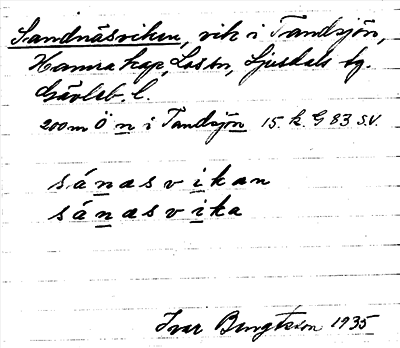 Sandnäsviken, vik i Tandsjön,
Hamra kap, Los sn, Ljusdals tg.
Gävleb. l.
200 m Ö n i Tandsjön 15. k. G 83 S.V.
sánasvikan
sánasvika
Ivar Bengtsson 1935